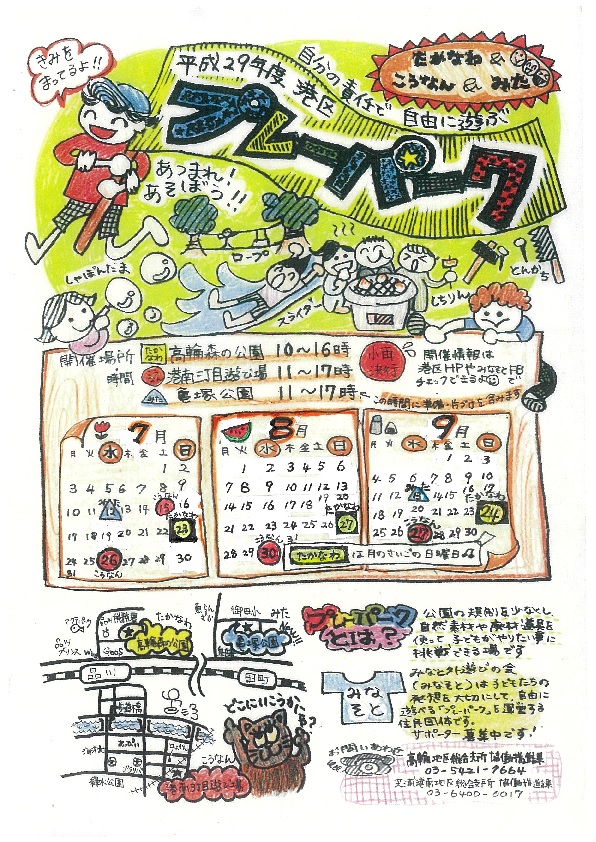 きみを
まってるよ!!
平成29年度 港区
自分の責任で
自由に遊ぶ
たかなわ &
こうなん & みた
プレーパーク
あつまれ!
あそぼう!!
ロープ
しゃぼんだま
スライダー
しちりん
とんかち
開催場所
時間
たかなわ 高輪森の公園 10~16時
こうなん 港南三丁目遊び場 11~17時
みた 亀塚公園 11~17時
この時間に準備・片づけを含みます
小雨
決行
開催情報は
港区HPやみなとFBで
チェックできるよ
7月
月 火 水 木 金 土 日
1 2
3 4 5 6 7 8 9
みた こうなん
10 11 12 13 14 15 16
たかなわ
17 18 19 20 21 22 23
24 25 26 27 28 29 30
31 こうなん
8月
月 火 水 木 金 土 日
1 2 3 4 5 6
7 8 9 10 11 12 13
14 15 16 17 18 19 20
たかなわ
21 22 23 24 25 26 27
こうなん
28 29 30 31
9月
月 火 水 木 金 土 日
1 2 3
みた
4 5 6 7 8 9 10
11 12 13 14 15 16 17
たかなわ
こうなん
24
25 26 27 28 29 30
たかなわ は月のさいごの日曜日
たかなわ
高輪森の公園
品川
プリンス
Goos
御田小
みた
亀塚公園
品川
田町
こうなん
港南3丁目遊び場
どこにいこうかな?
プレーパーク
とは?
公園の規則を少なくし、
自然素材や廃材道具を
使って子どもがやりたい事に
挑戦できる場です
みなと外遊びの会
(みなそと)は子どもたちの
発想を大切にして、自由に
遊べる「プレーパーク」を運営する
住民団体です。
サポーター募集中です!
みな
そと
お問いあわせ
高輪地区総合支所 協働推進課
03-5421-7664
芝浦港南地区総合支所 協働推進課
03-6400-0017